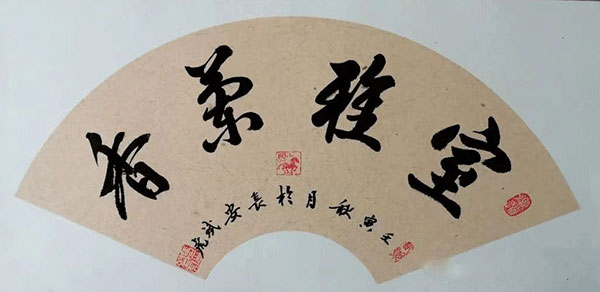 室雅蘭香
壬寅秋月於長安斌虎